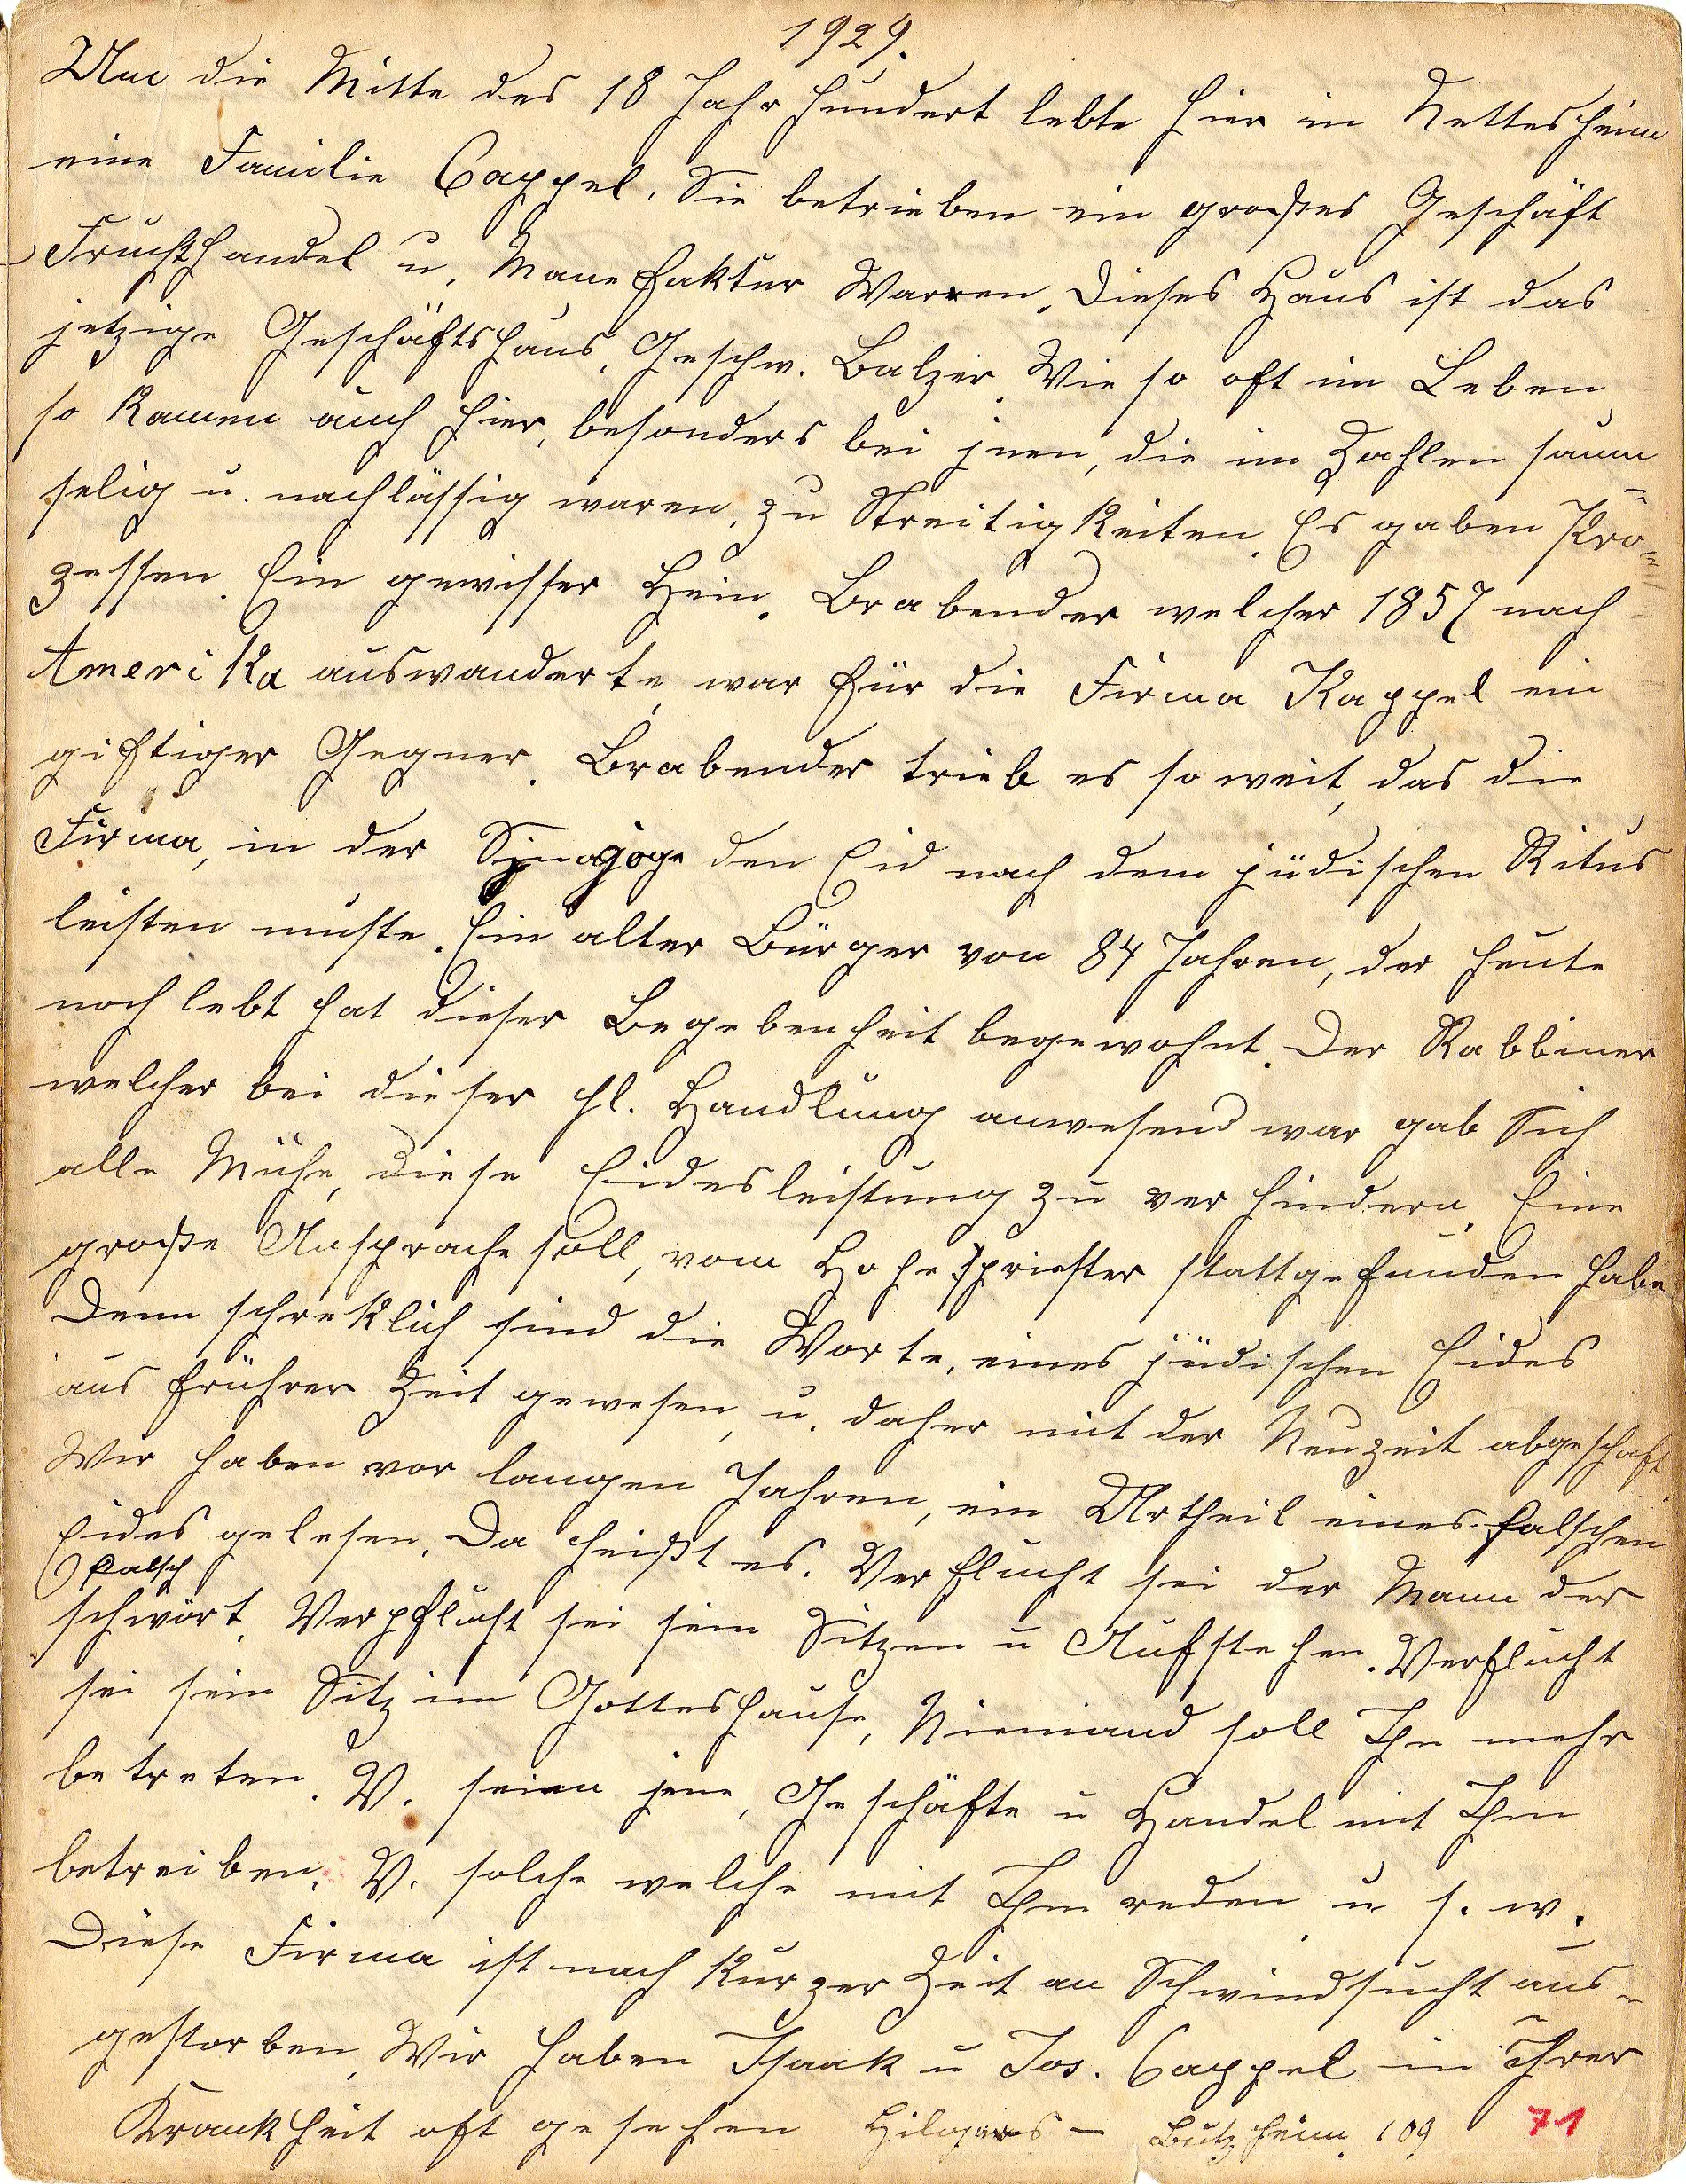 1929.
Um die Mitte des 18 Jahrhundert lebte hier in Nettesheim
eine Familie Cappel. Sie betrieben ein großes Geschäft
Fruchthandel u. Manefaktur Warren. Dieses Haus ist das
jetzige Geschäftshaus, Geschw. Balzer. Wie so oft im Leben,
so kamen auch hier, besonders bei jnen, die im Zahlen saum=
selig u. nachlässig waren, zu Streitigkeiten. Es gaben Pro=
zessen. Ein gewisser Hein. Brabender welcher 1857 nach
Amerika auswanderte, war für die Firma Kappel ein
giftiger Gegner. Brabender trieb es so weit, das die
Firma, in der Synagoge den Eid nach dem jüdischen Ritus
leisten muste. Ein alter Bürger von 84 Jahren, der heute
noch lebt hat dieser Begebenheit begewohnt. Der Rabbiner
welcher bei dieser hl. Handlung anwesend war gab Sich
alle Mühe, diese Eidesleistung zu verhindern. Eine
große Ansprache soll, vom Hohespriester stattgefunden habe
Denn schreklich sind die Worte, eines jüdischen Eides
aus frührer Zeit gewesen, u. daher mit der Neuzeit abgeschaft
Wir haben vor langen Jahren, ein Urtheil eines falschen
Eides gelesen. Da heißt es. Verflucht sei der Mann der
falsch
schwört. Verpflucht sei sein Sitzen u Aufstehen. Verflucht
sei sein Sitz im Gotteshause, Niemand soll Ihn mehr
betreten. V. seien jene, Geschäfte u Handel mit Ihm
betreiben. V. solche welche mit Ihm reden u s. w.
Diese Firma ist nach kurzer Zeit an Schwindsucht aus=
gestorben, Wir haben Isaak u Jos. Cappel in Ihrer
Krankheit oft gesehen Hilgers – Butzheim. 109 71